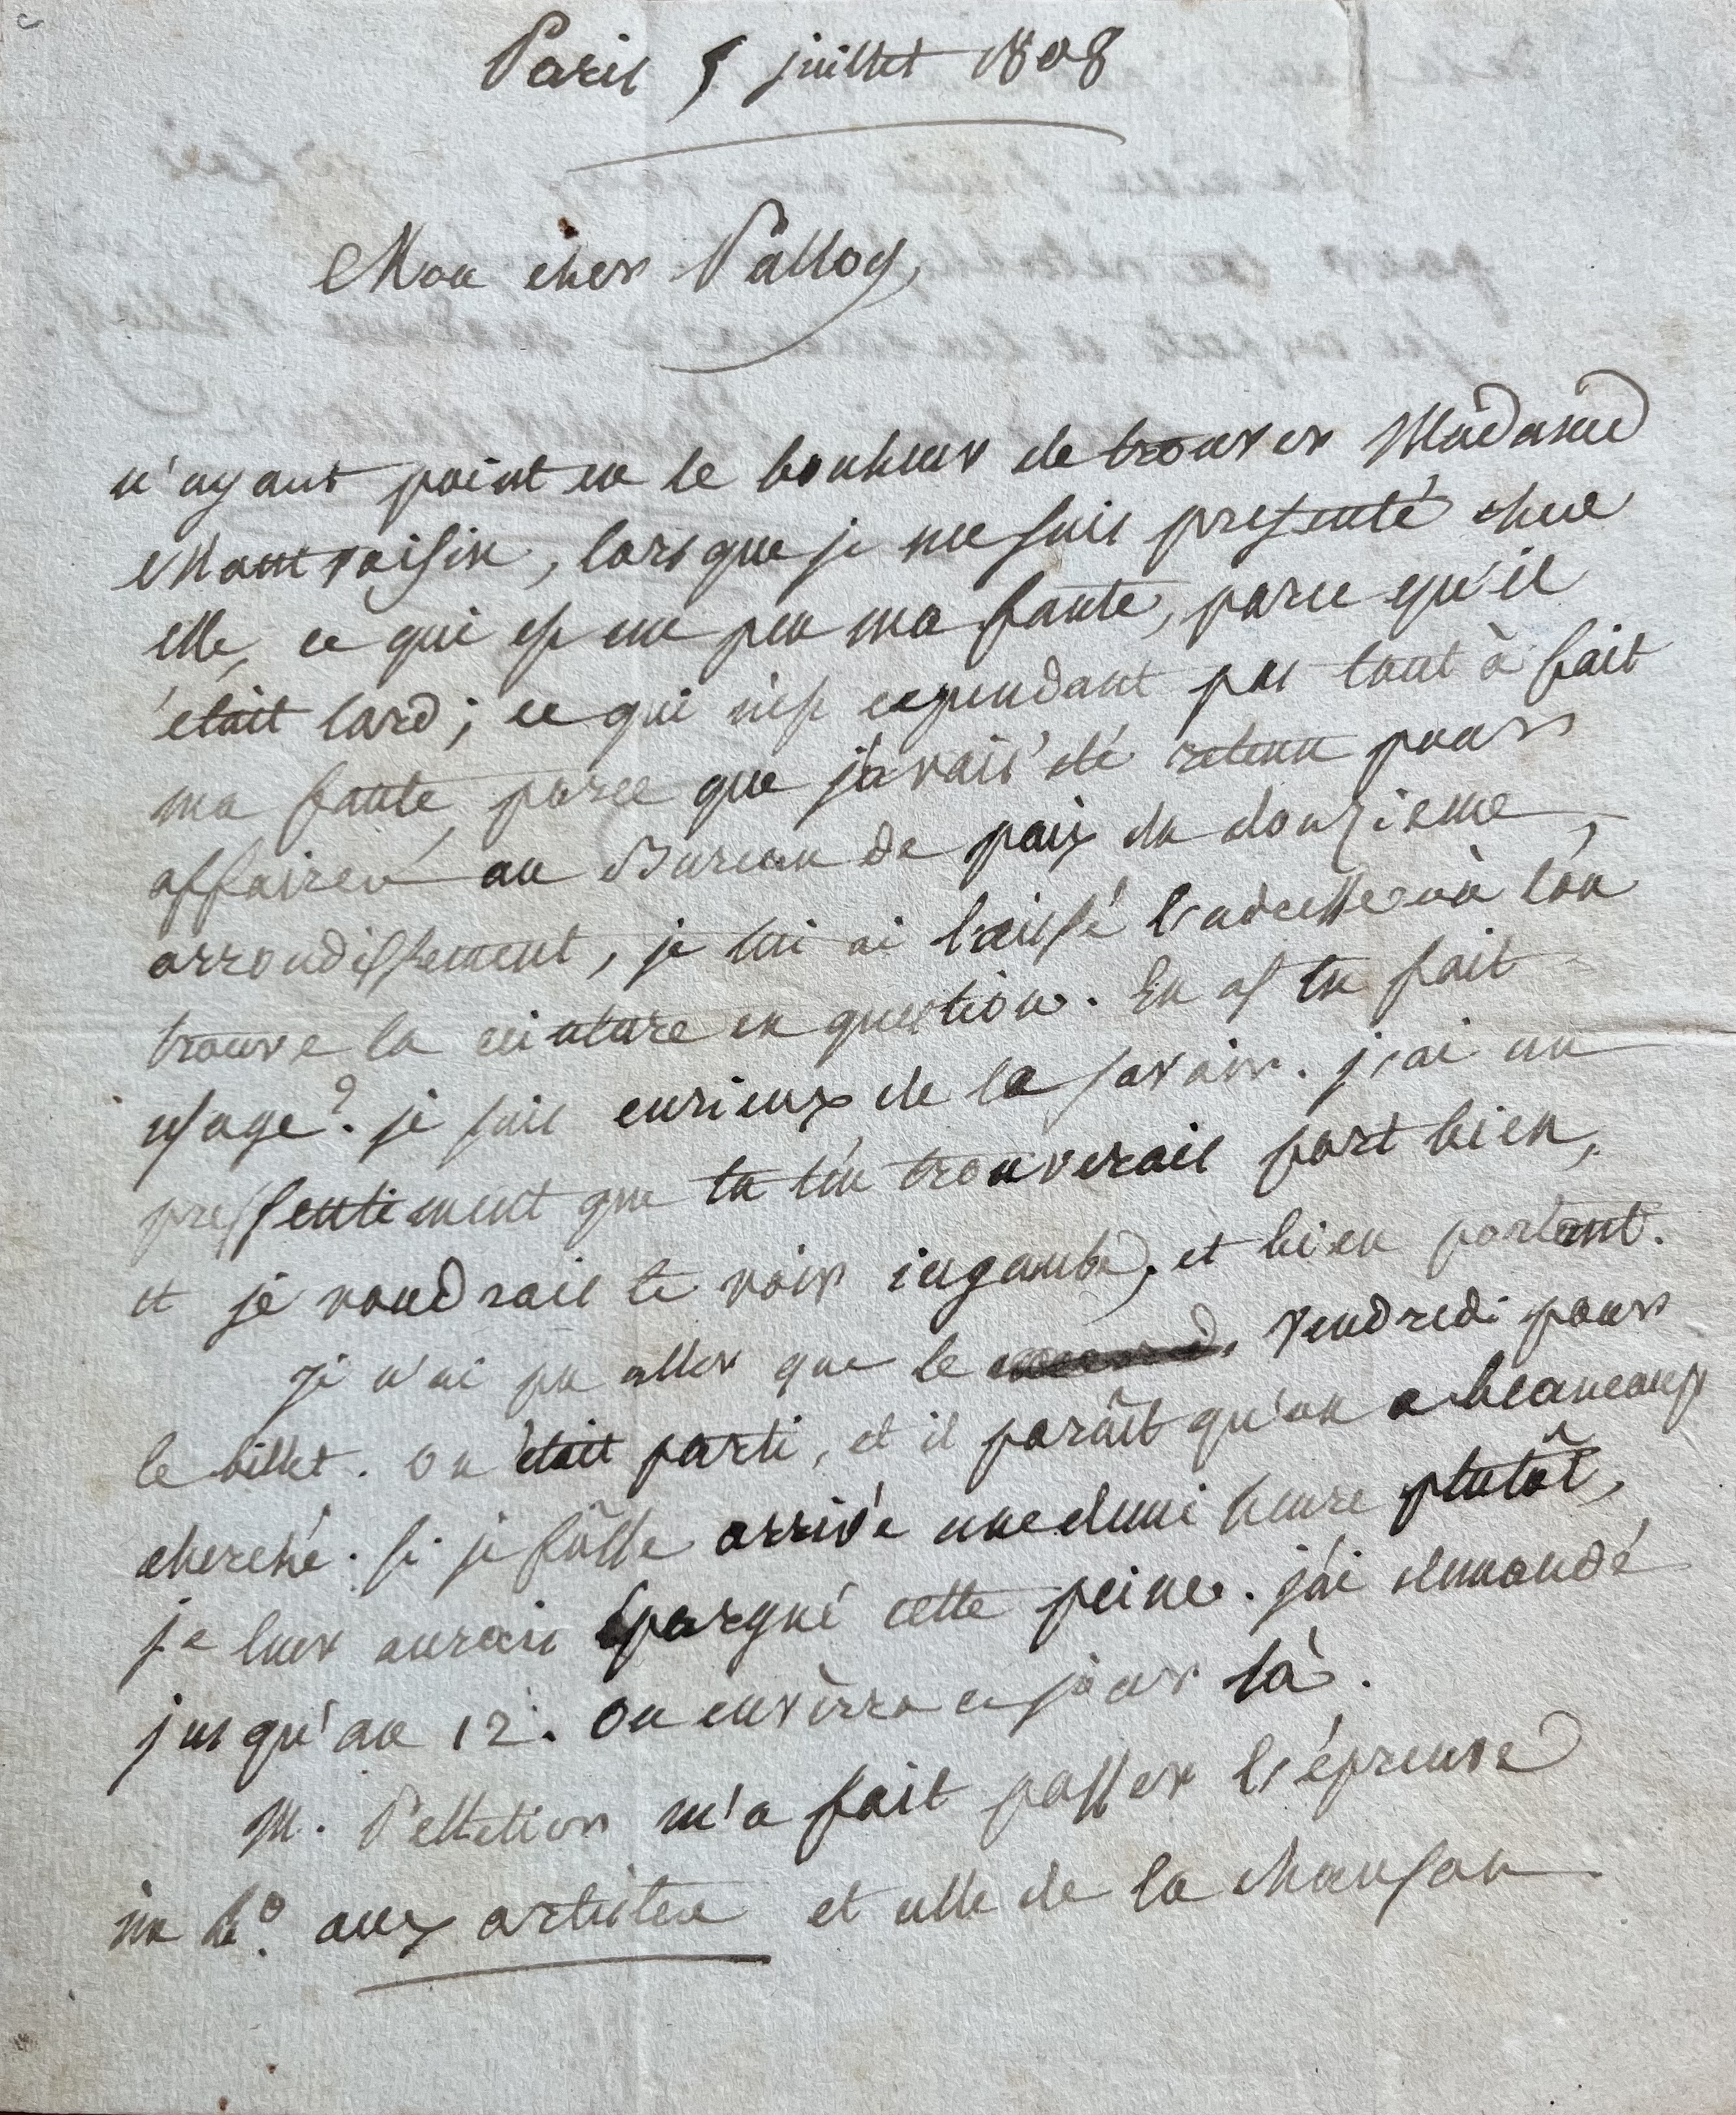 Paris 5 juillet 1808
Mon cher Palloy,
n'ayant point eu le bonheur de trouver Madame
Montvoisin, lorsque je me suis presenté chez
elle, ce qui est un peu ma faute, parce qu'il
était tard; ce qui n'est cependant pas tout à fait
ma faute, parce que j'avais été retenu pour
affaires au Bureau de paix du douzieme
arrondissement, je lui ai laissé l'adresse où l'on
trouve la ceinture en question. En as tu fait
usage? je suis curieux de la savoir. j'ai un
pressentiment que tu t'en trouverais fort bien,
et je voudrais te voir ingambe, et bien portant.
je n'ai pu aller que le vendredi pour
le billet. on était parti, et il parâit qu'on a beaucoup
cherché. si je fûsse arrivé une demi heure plutôt,
je leur aurais épargné cette peine. j'ai demandé
jusqu'au 12. on enverra ce jour là.
M. Pelletier m'a fait passer l'épreuve
in 8º. aux artistes et celle de la chanson